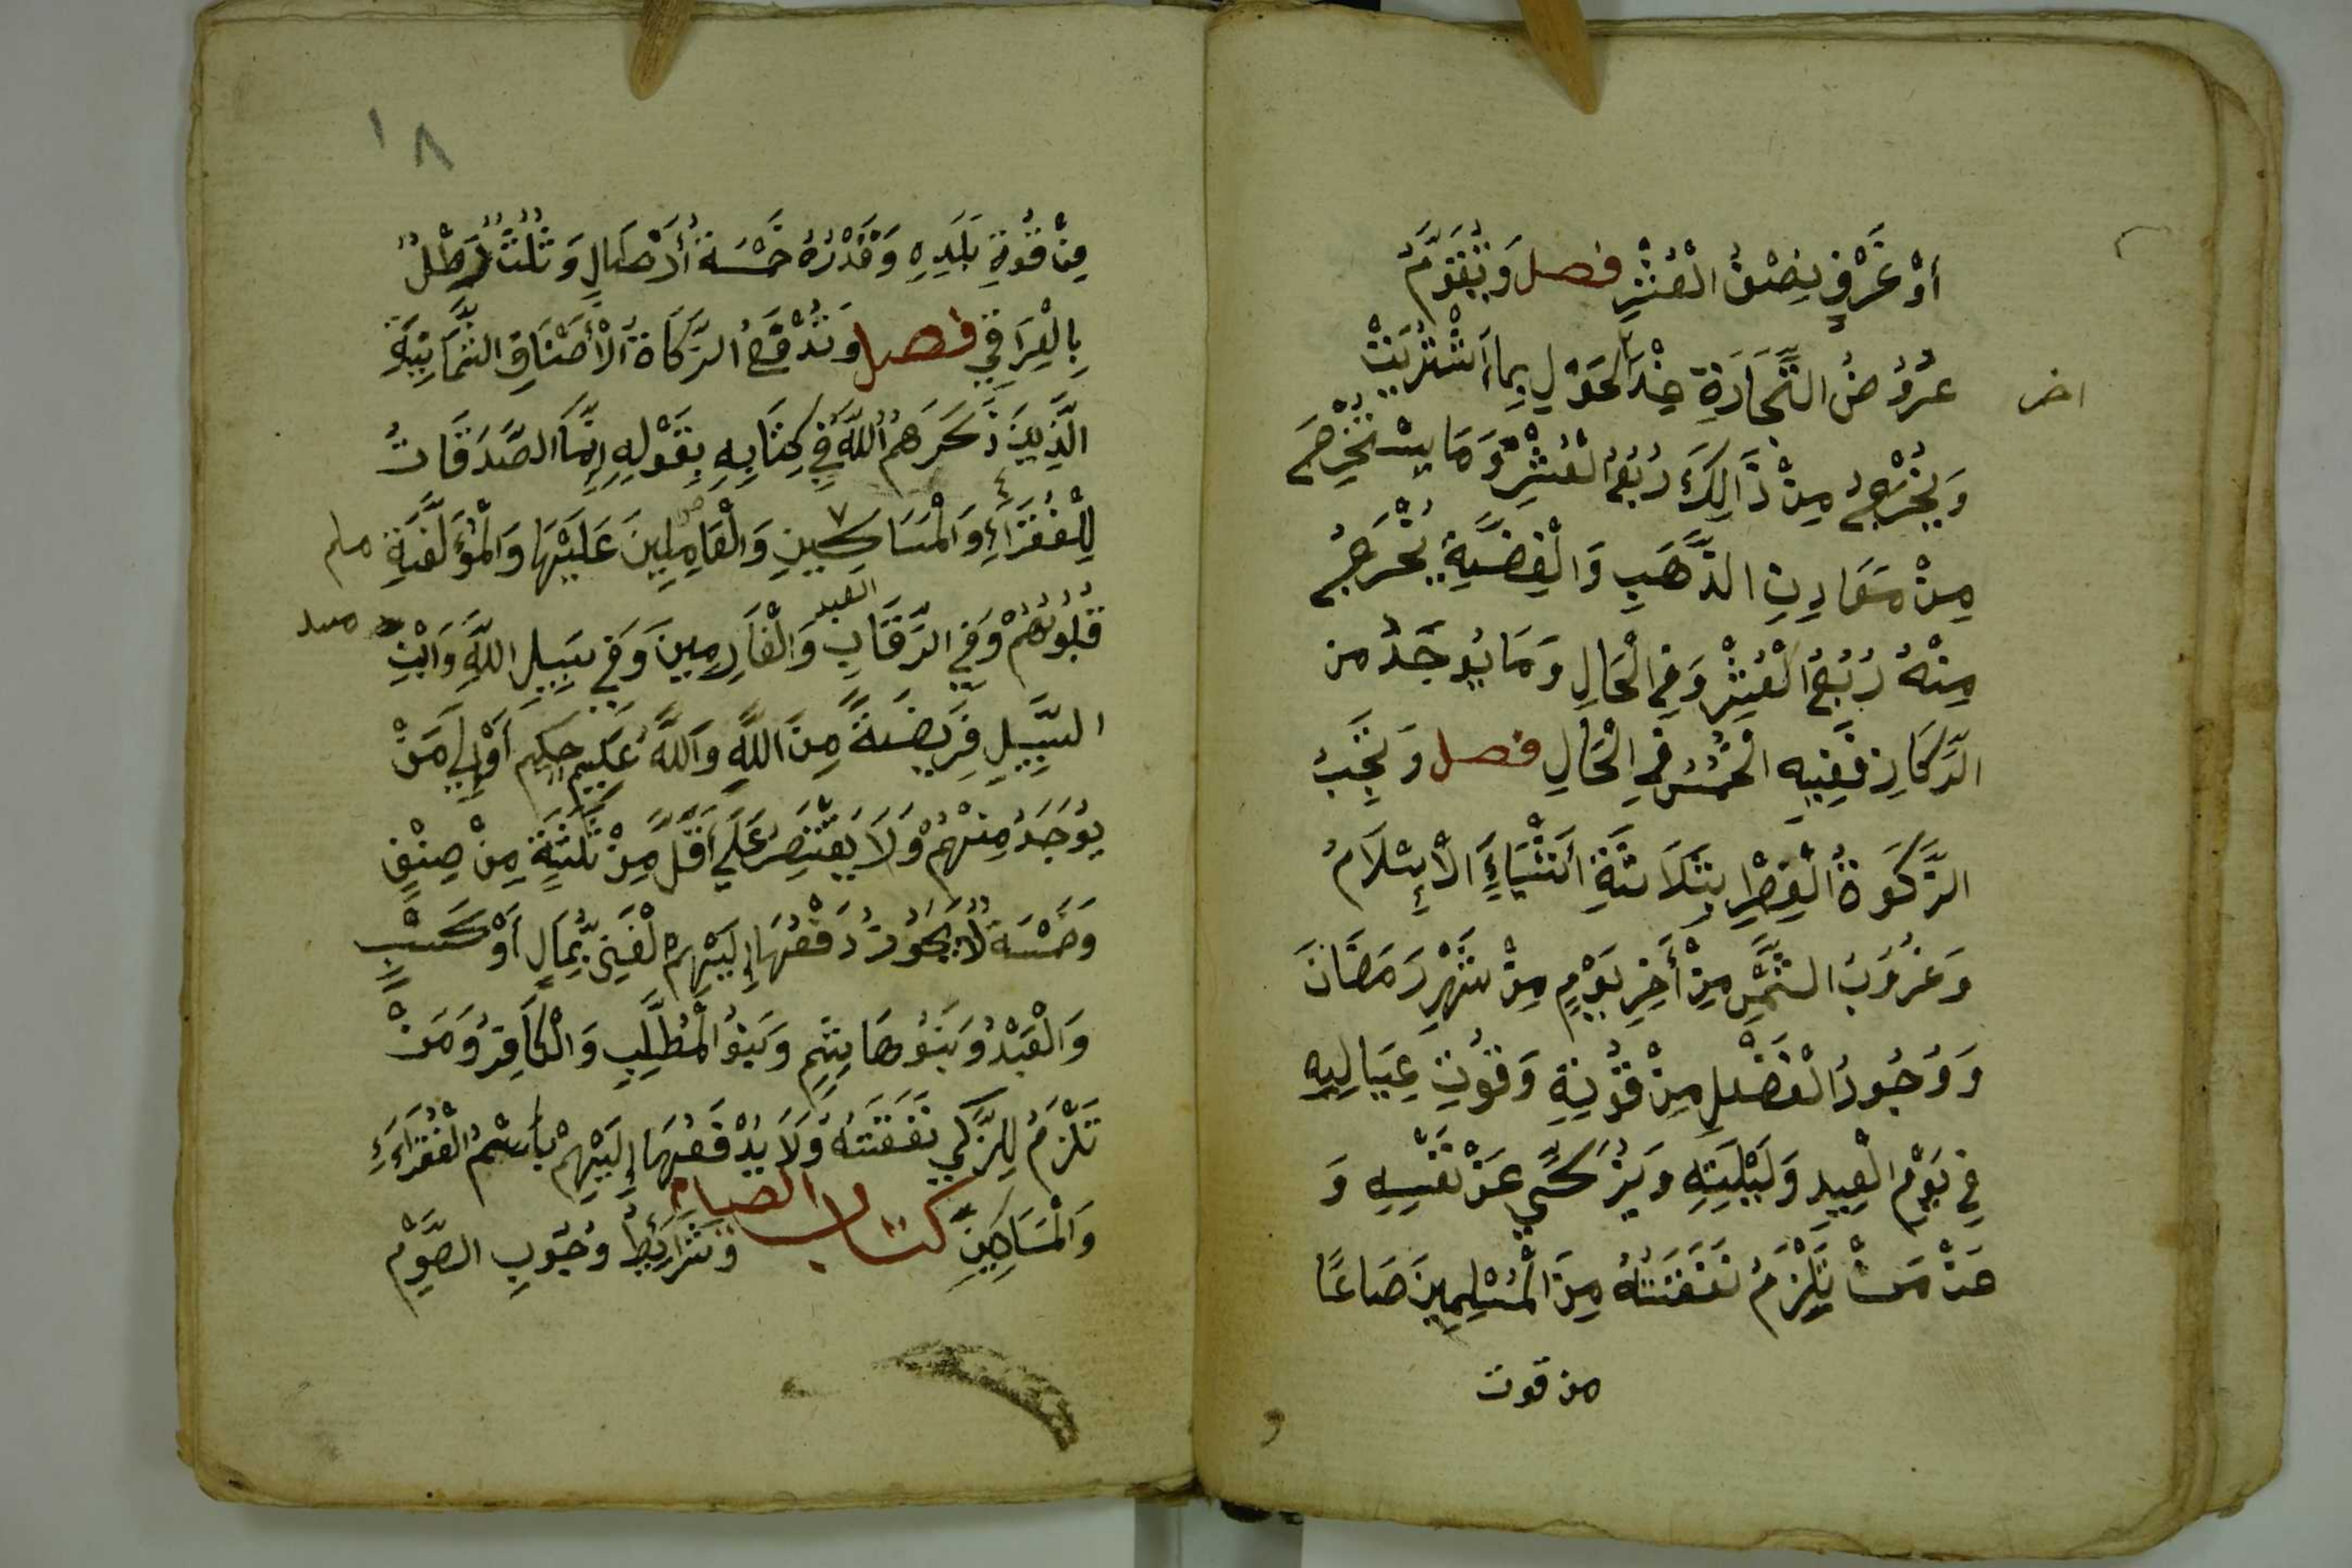 أَوْ غَرْفٍ نِصْفُ الْعُشْرِ فصل وَتُقَوَّمُ
عُرُوضُ التِّجَارَةِ عِنْدَ الْحَوْلِ بِمَا اشْتُرِيَتْ
اخر
وَيُخْرَجُ مِنْ ذَالِكَ رُبُعُ الْعُشْرِ وَمَا يسْتُخْرِجَ
مِنْ مَعَادِنِ الذَّهَبِ وَالْفِضَّةِ يُخْرَجُ
مِنْهُ رُبُعُ الْعُشْرِ وَفِي الْحَالِ وَمَا يُوجَدُ من
الرِّكَازِ فَفِيهِ الْخُمُسُ فِي الْحَالِ فصل وَتَجِبُ
الزَّكَوةُ الْفِطْرِ بِثَلَاثَةِ أَشْيَاءَ الْإِسْلَامُ
وَغُرُوبُ الشَّمْسِ مِنْ أَخِرِ يَوْمٍ مِنْ شَهْرِ رَمَضَانَ
وَوُجُودُ الْفَضْلِ مِنْ قُوتِهِ وَقُوتِ عِيَالِهِ
فِي يَوْمِ الْعِيدِ وَلَيْلَتِهِ وَيُزَكِّي عَنْ نَفْسِهِ وَ
عَنْ مَنْ تَلْزَمُ نَفَقَتُهُ مِنَ الْمُسْلِمِينَ صَاعًا
من قوت
١٨
مِنْ قُوتِ بَلَدِهِ وَقَدْرُهُ خَمْسَةُ أَرْطَالٍ وَثُلُثُ رَطْلٌ
بِالْعِرَاقِي فصل وَتُدْفَعُ الزَّكَاةُ الْأَصْنَافِ الثَّمَانِيَةِ
الَّذِينَ ذَكَرَهُمُ اللّٰهُ فِي كِتَابِهِ بِقَوْلِهِ إِنَّمَا الصَّدَقَاتُ
لِلْفُقَرَاءِ وَالْمَسَاكِينِ وَالْعَامِلِينَ عَلَيْهَا وَالْمُؤَلَّفَةِ
قُلُوبُهُمْ وَفِي الرِّقَابِ وَالْغَارِمِينَ وَفِي سَبِيلِ اللّٰهِ وَابْنِ
السَّبِيلِ فَرِيضَةً مِنَ اللّٰهِ وَاللّٰهُ عَلِيمٌ حَكِيمٌ أَوْ إِلَى مَنْ
يُوجَدُ مِنْهُمْ وَلَا يَقْتَصِرُ عَلَى أَقَلَّ مِنْ ثَلَثَةٍ مِنْ صِنْفٍ
وَخَمْسَةٌ لَا يَجُوزُ دَفْعُهَا إِلَيْهِمْ الْغَنِيُّ بِمَالٍ أَوْ كَسْبٍ
وَالْعَبْدُ وَبَنُو هَاشِمٍ وَبَنُو الْمُطَّلِبِ وَالْكَافِرُ وَمَنْ
تَلْزَمُ لِلزَّكِي نَفَقَتُهُ وَلَا يَدْفَعُهَا إِلَيْهِمْ بِاسْمِ الْفُقَرَاءِ
وَالْمَسَاكِينِ كتاب الصيام وَشَرَائِطُ وُجُوبِ الصَّوْمِ